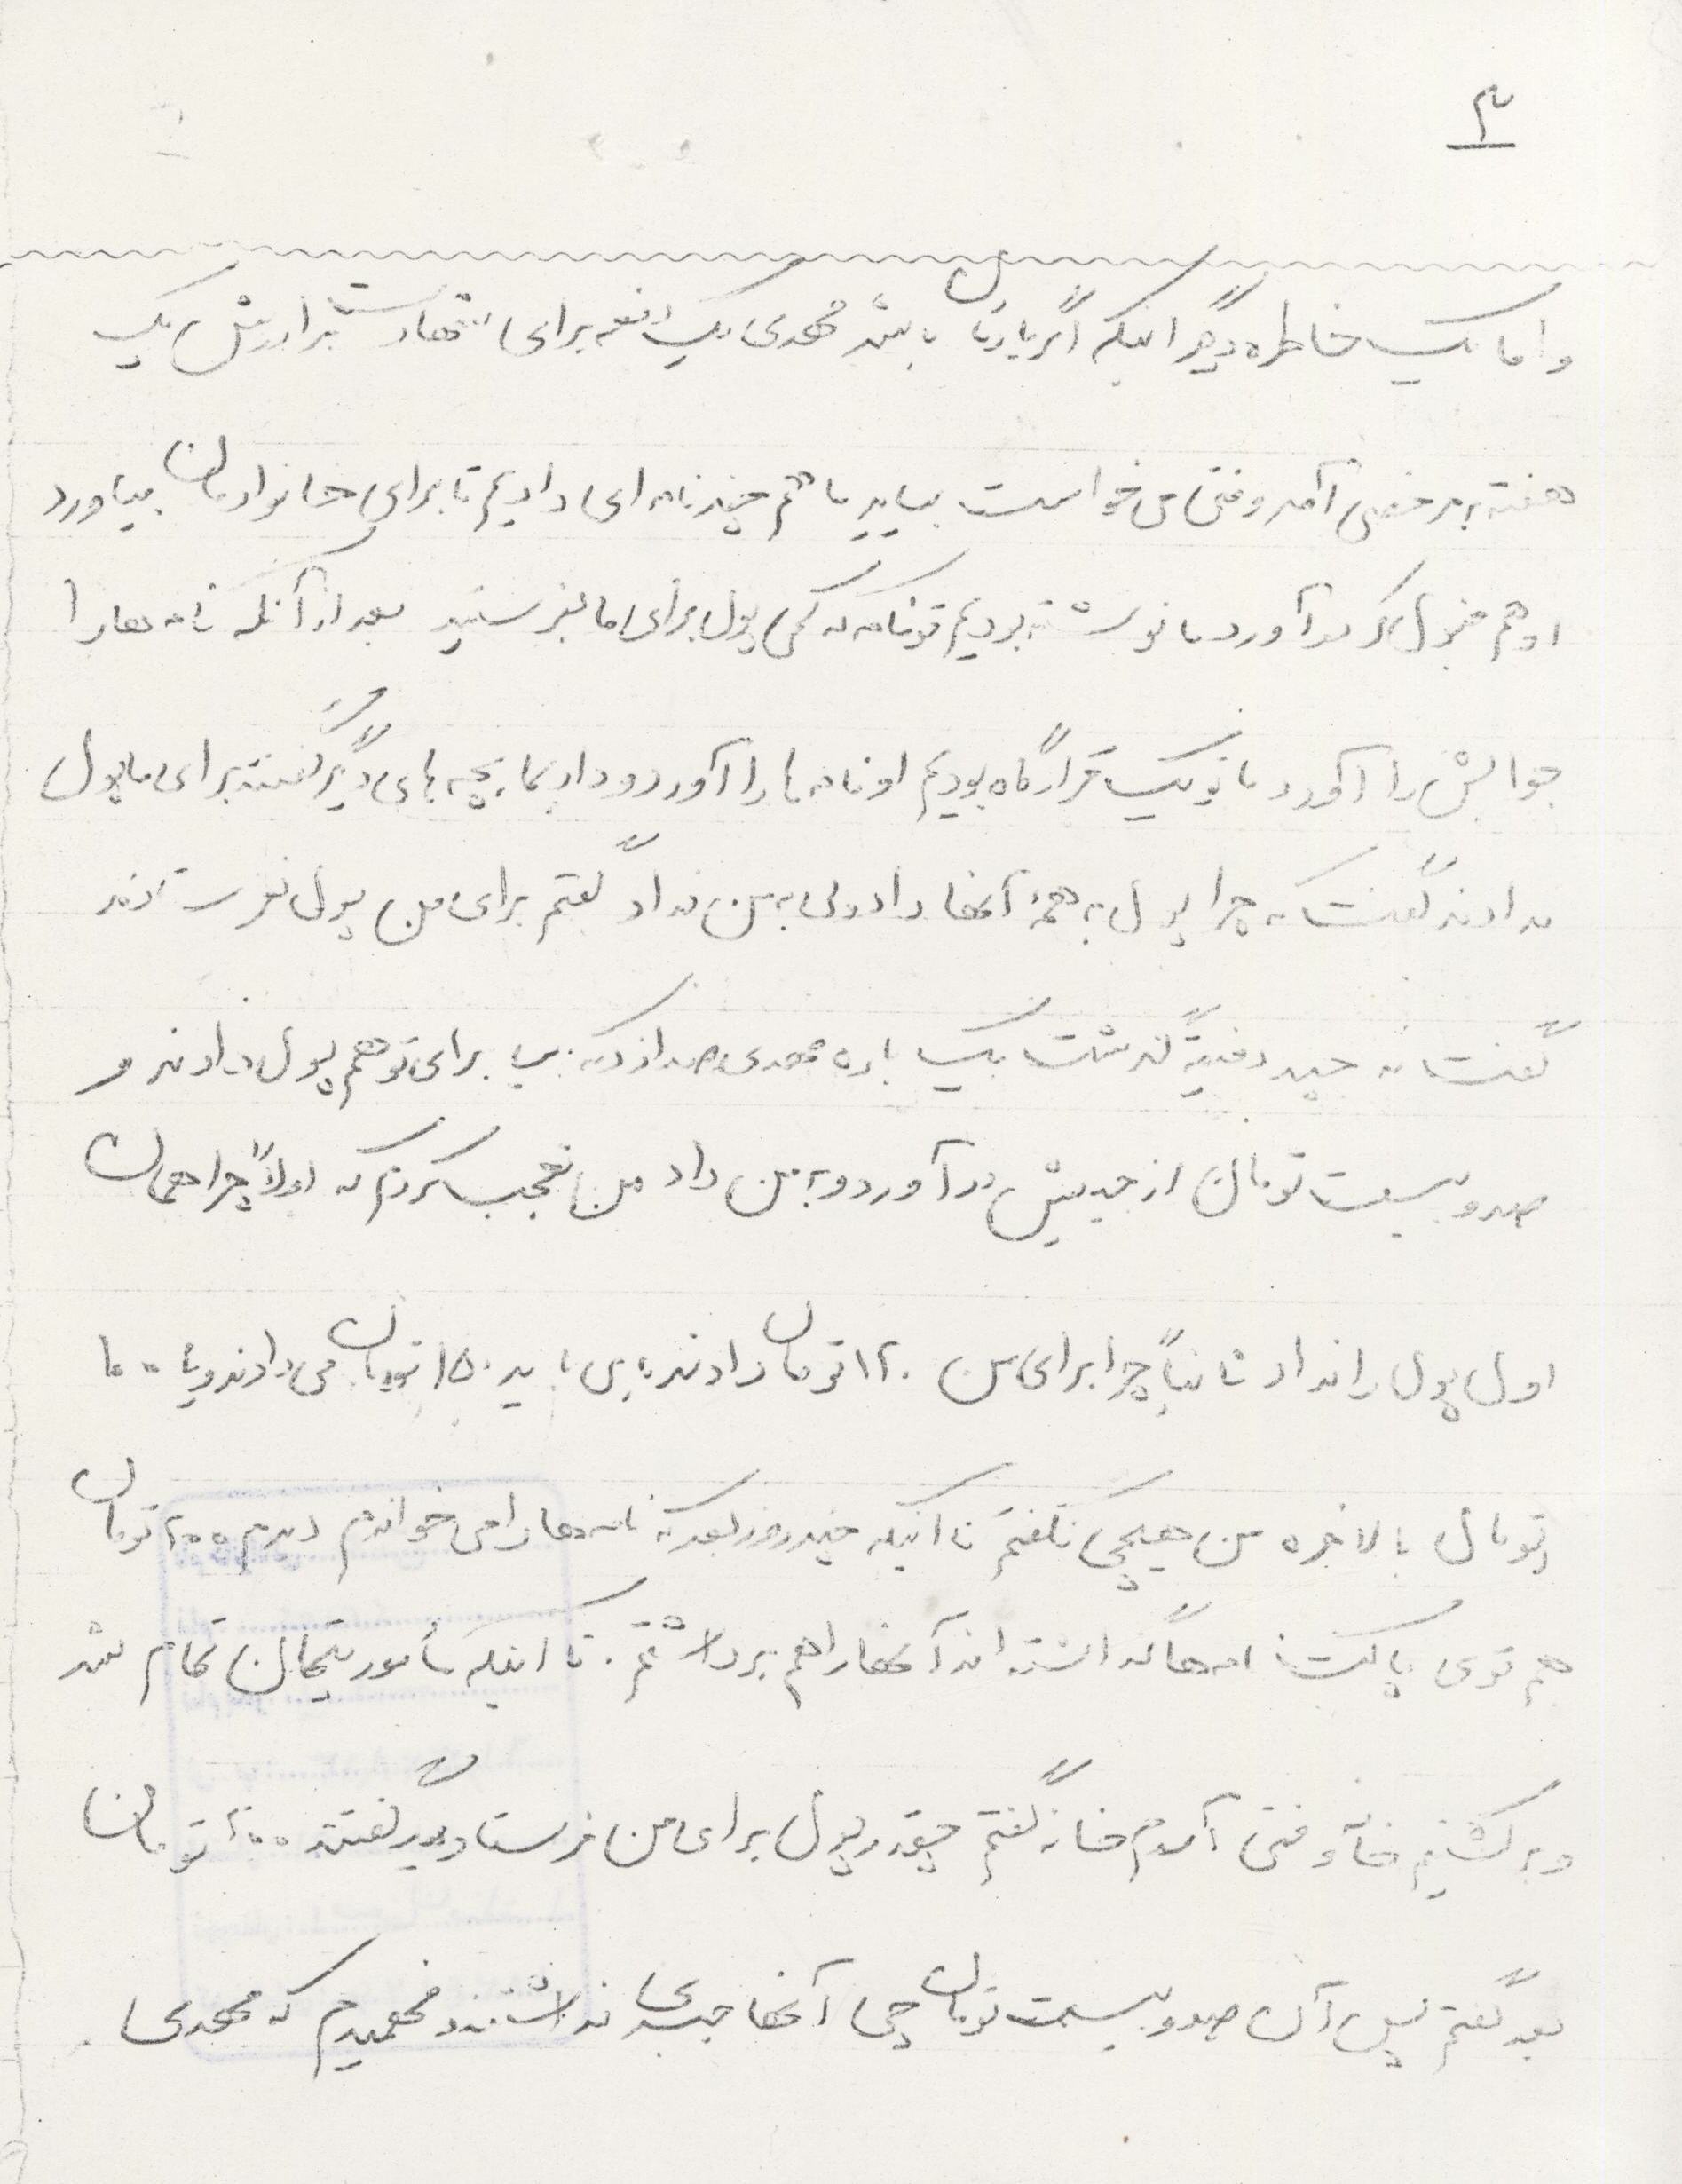 ۳
و اما یک خاطره دیگر اینکه اگر یادتان باشد مهدی یک دفعه برای شهادت برادرش یک
هفته به مرخصی آمد وقتی می خواست بیاید ما هم چند نامه ای دادیم تا برای خانوادمان بیاورد
او هم قبول کرد آورد ما نوشته بودیم تو نامه که کمی پول برای ما بفرستید بعد از آنکه نامه ها را
جوابش را آورد ما تو یک قرارگاه بودیم او نامه ها را آورد و داد بما بچه های دیگر گفتند برای ما پول
ندادند گفت که چرا پول به همۀ آنها داد ولی به من نداد گفتم برای من پول نفرستادند
گفت نه چند دقیقه گذشت یک باره مهدی صدا زد که بیا برای تو هم پول دادند و
صد و بیست تومان از جیبش در آورد و به من داد من تعجب کردم که اولاً چرا همان
اول پول را نداد ثانیاً چرا برای من ۱۲۰ تومان دادند پس باید ۱۵۰ تومان می دادند و یا ۱۰۰
تومان بالاخره من هیچی نگفتم تا اینکه چند روز بعد که نامه ها را می خواندم دیدم ۲۰۰ تومان
هم توی پاکت نامه ها گذاشته اند آنها را هم برداشتم. تا اینکه مأموریتمان تمام شد
و برگشتیم خانه وقتی آمدم خانه گفتم چقدر پول برای من فرستادید گفتند ۲۰۰ تومان
بعد گفتم پس آن صد و بیست تومان چی آنها خبری نداشتند فهمیدم که مهدی